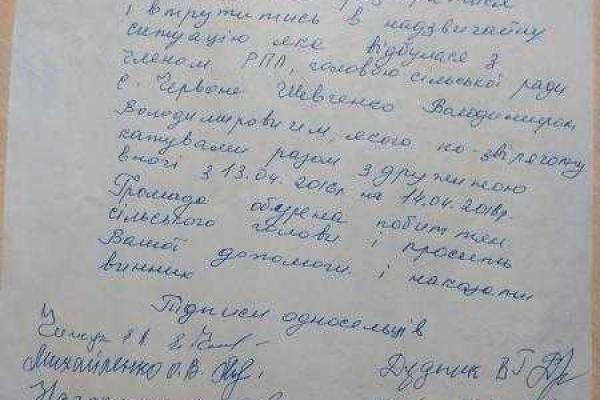 і втрутитись в надзвичайну
ситуацію яка відбулася з
членом РПЛ, головою сільської ради
с. Червоне Шевченко Володимиром
Володимировичем, якого по-звірячому
катували разом з дружиною
вночі з 13.04.2016р на 14.04.2016р.
Громада обурена побиттям
сільського голови і просить
Вашої допомоги і наказати
винних
Підписи односельців
Михайленко О.В.
Дудник В Г